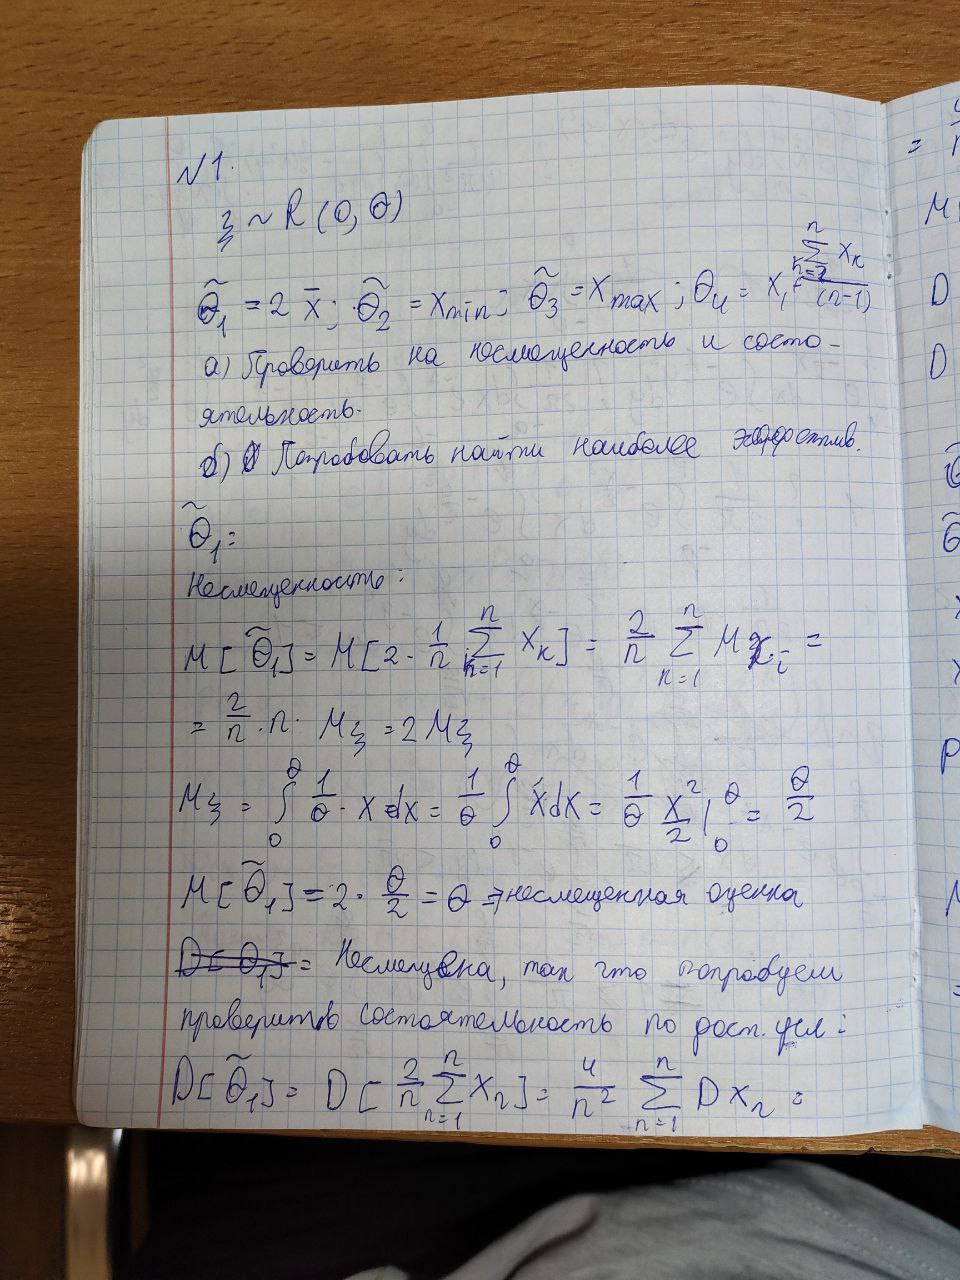 №1.
ξ ~ R(0, θ)
θ̃₁ = 2x̄; θ̃₂ = xmin; θ̃₃ = xmax; θ₄ = x₁ + (∑_{k=2}^{n} xₖ)/(n-1)
а) Проверить на несмещенность и состо-
ятельность.
б) Попробовать найти наиболее эффектив.
θ̃₁:
Несмещенность:
M[θ̃₁] = M[2 · 1/n ∑_{k=1}^{n} xₖ] = 2/n ∑_{n=1}^{n} M xᵢ =
= 2/n · n · Mξ = 2Mξ
Mξ = ∫₀^θ 1/θ · x dx = 1/θ ∫₀^θ x dx = 1/θ x²/2 |₀^θ = θ/2
M[θ̃₁] = 2 · θ/2 = θ ⇒ несмещенная оценка
D[θ̃₁] = Несмещена, так что попробуем
проверить состоятельность по дост. усл:
D[θ̃₁] = D[2/n ∑_{n=1}^{n} xₙ] = 4/n² ∑_{n=1}^{n} D xₙ =
=
M
D
D
θ̃